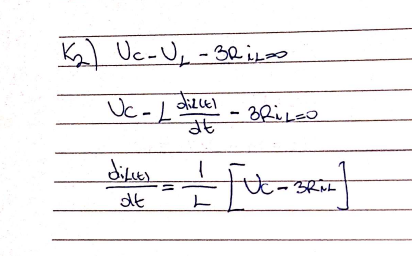 K₂) Uc - U_L - 3R i_L = 0
Uc - L di_L(t)/dt - 3R i_L = 0
di_L(t)/dt = 1/L [Uc - 3R i_L]